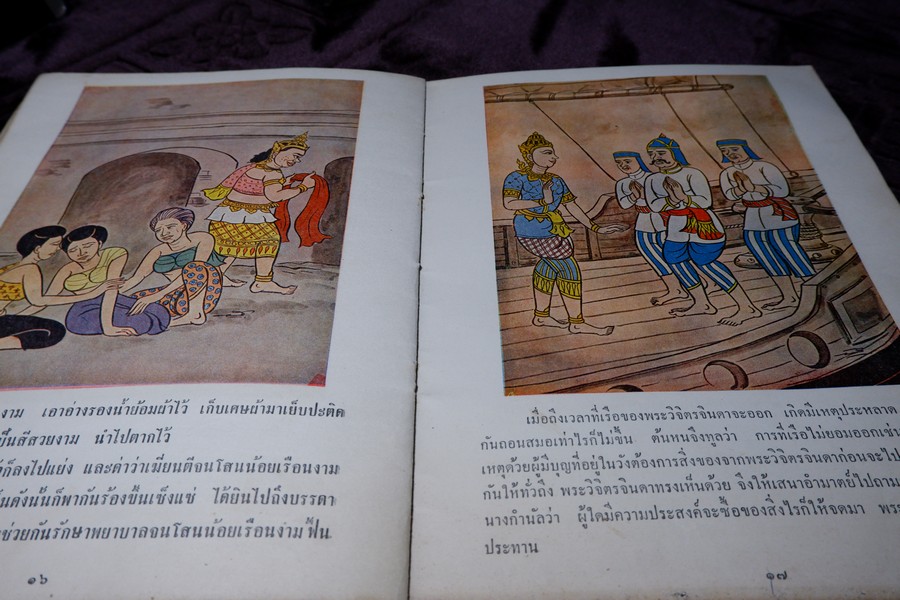 งาม เอาอ่างรองน้ำย้อมผ้าไว้ เก็บเศษผ้ามาเย็บปะติด
ย็นสีสวยงาม นำไปตากไว้
ก็ลงไปแย่ง และด่าว่าเฆี่ยนตีจนโสนน้อยเรือนงาม
ดังนั้นก็พากันร้องขึ้นเซ็งแซ่ ได้ยินไปถึงบรรดา
ช่วยกันรักษาพยาบาลจนโสนน้อยเรือนงามฟื้น
๑๖
เมื่อถึงเวลาที่เรือของพระวิจิตรจินดาจะออก เกิดมีเหตุประหลาด
กันถอนสมอเท่าไรก็ไม่ขึ้น ต้นหนจึงทูลว่า การที่เรือไม่ยอมออกเช่น
เหตุด้วยผู้มีบุญที่อยู่ในวังต้องการสิ่งของจากพระวิจิตรจินดาก่อนจะไป
กันให้ทั่วถึง พระวิจิตรจินดาทรงเห็นด้วย จึงให้เสนาอำมาตย์ไปถาม
นางกำนัลว่า ผู้ใดมีความประสงค์จะซื้อของสิ่งไรก็ให้จดมา พระ
ประทาน
๑๗